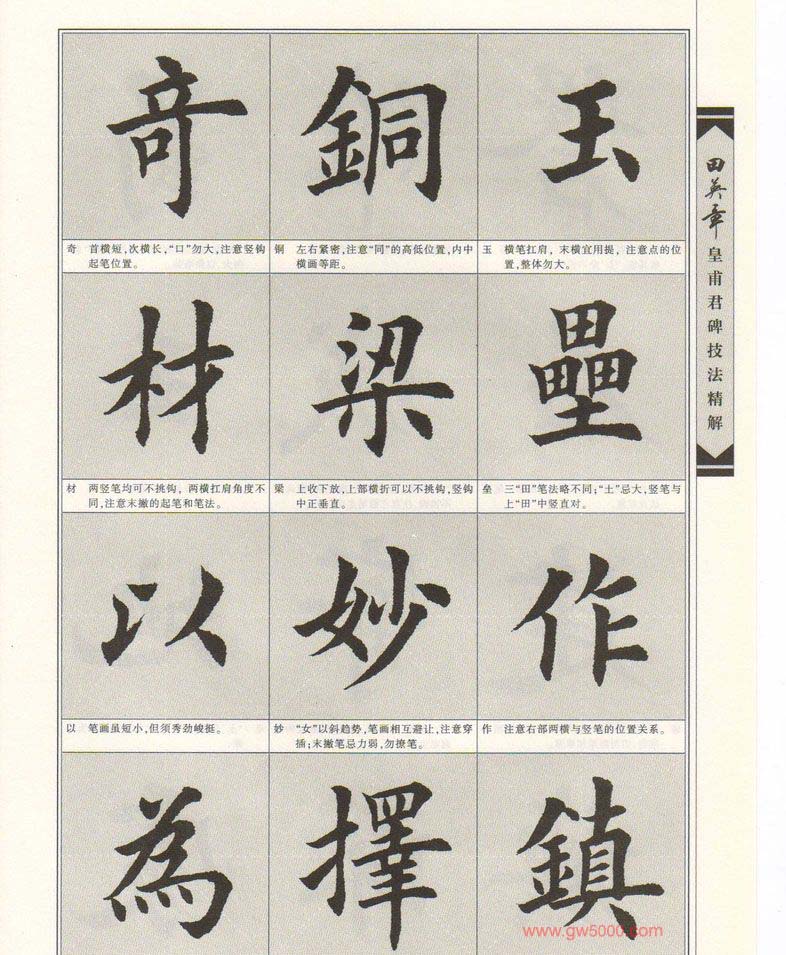 奇
銅
玉
奇 首横短,次横长,“口”勿大,注意竖钩
起笔位置。
铜 左右紧密,注意“同”的高低位置,内中
横画等距。
玉 横笔扛肩，末横宜用提，注意点的位
置,整体勿大。
材
梁
壘
材 两竖笔均可不挑钩，两横扛肩角度不
同,注意末撇的起笔和笔法。
梁 上收下放,上部横折可以不挑钩,竖钩
中正垂直。
垒 三“田”笔法略不同;“土”忌大,竖笔与
上“田”中竖直对。
以
妙
作
以 笔画虽短小,但须秀劲峻挺。
妙 “女”以斜趋势,笔画相互避让,注意穿
插;末撇笔忌力弱,勿撩笔。
作 注意右部两横与竖笔的位置关系。
為
擇
鎮
田英章
皇甫君碑技法精解
www.gw5000.com